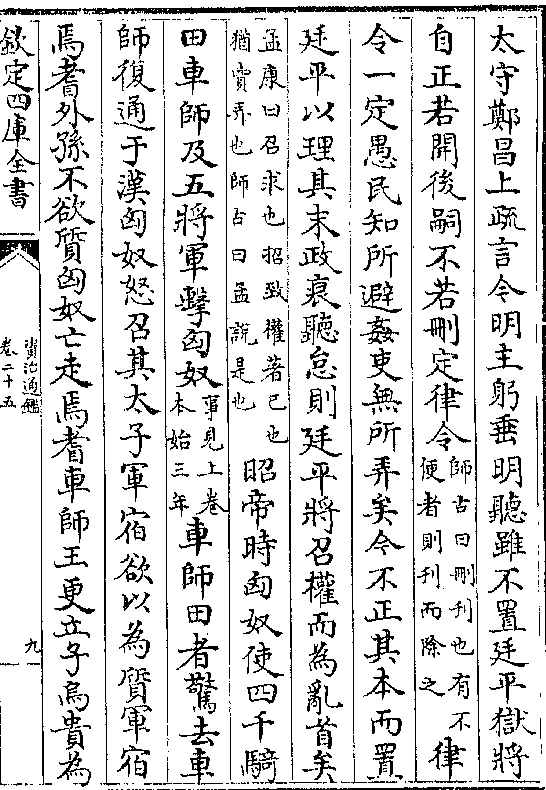 太守鄭昌上疏言今明主躬垂明聽雖不置廷平獄將
自正若開後嗣不若刪定律令師古曰刪刋也有不便者則刋而除之律
令一定愚民知所避姦吏無所弄矣今不正其本而置
廷平以理其末政衰聽怠則廷平將召權而為亂首矣
孟康曰召求也招致權著已也猶賣弄也師古曰孟說是也昭帝時匈奴使四千騎
田車師及五將軍擊匈奴事見上卷本始三年車師田者驚去車
師復通于漢匈奴怒召其太子軍宿欲以為質軍宿
焉耆外孫不欲質匈奴亡走焉耆車師王更立子烏貴為
欽定四庫全書
資治通鑑
卷二十五
九